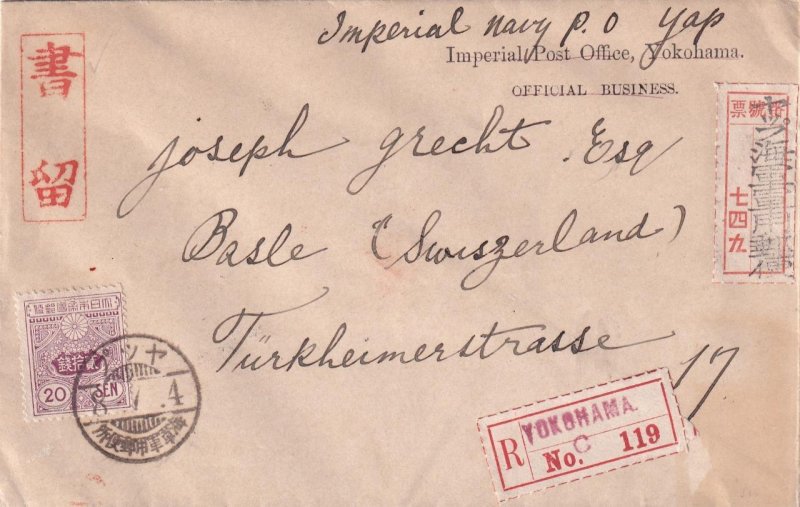 Imperial navy P.O Yap
Imperial Post Office, Yokohama.
OFFICIAL BUSINESS.
書留
Joseph Grecht. Esq
Basle (Swiszerland)
Türkheimerstrasse 17
號票
七四九
大日本帝國郵便
貳拾銭
20 SEN
ヤップ
8. V .4
海軍軍用郵便所
R
YOKOHAMA.
C
No. 119